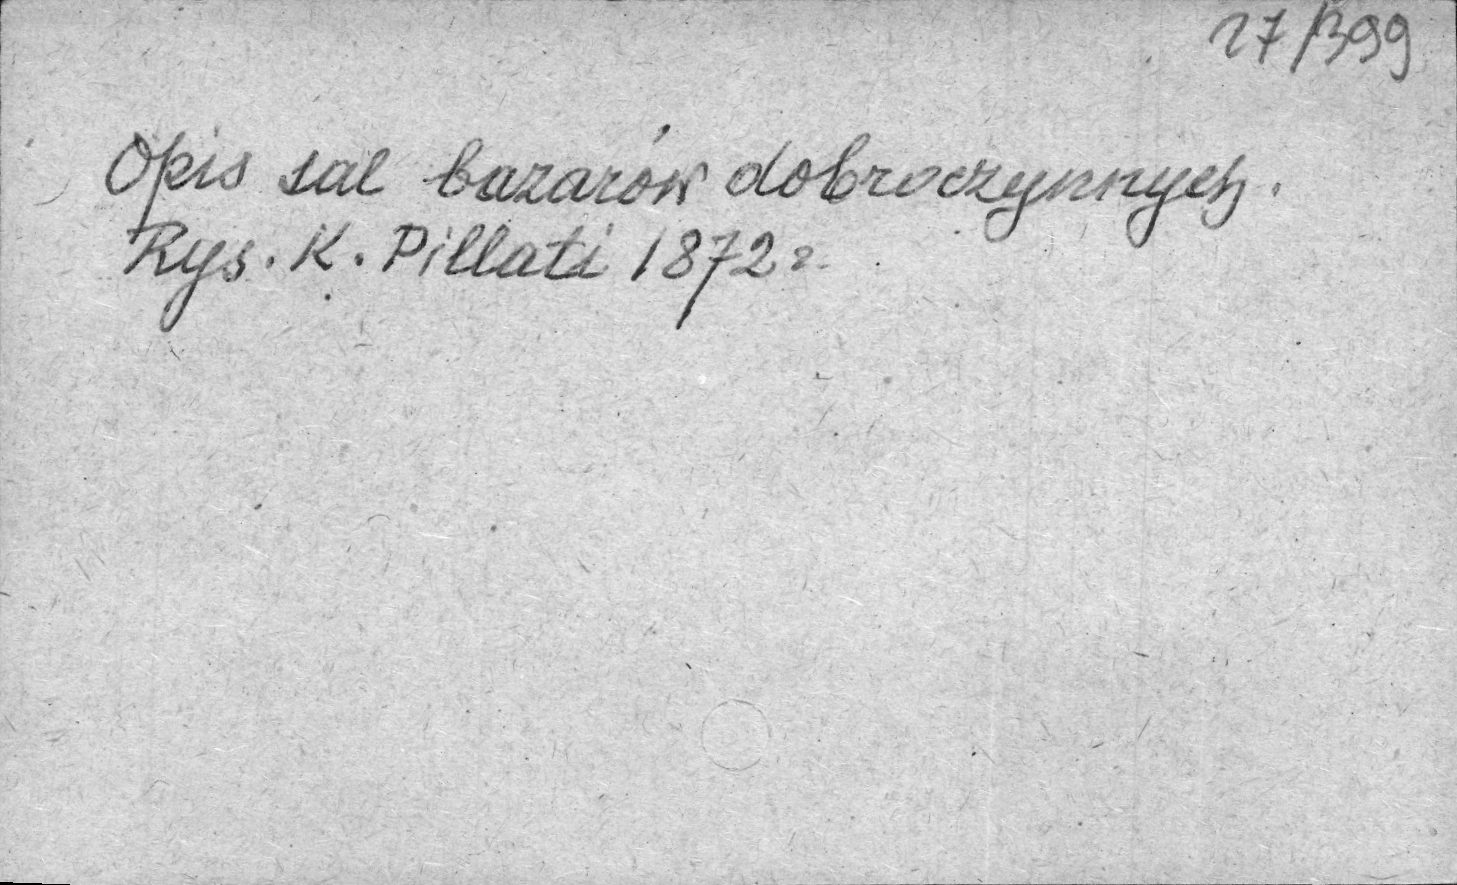 17/399
Opis sal bazarów dobroczynnych.
Rys. K. Pillati 1872 r.